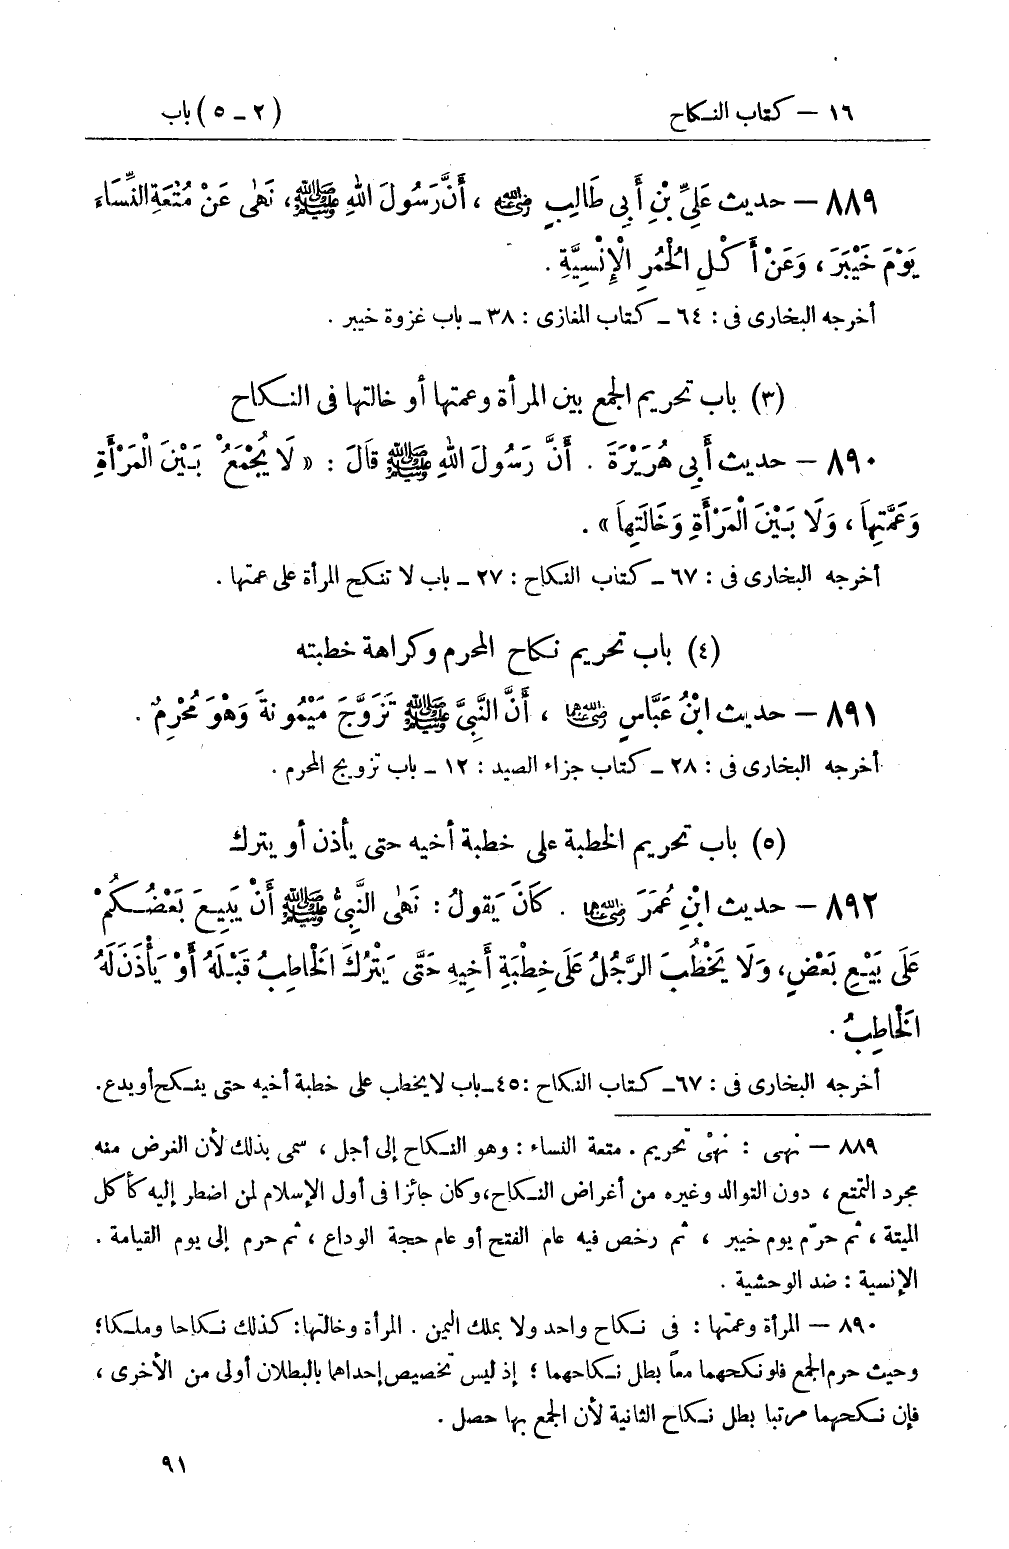 ١٦ – كتاب النكاح (٢ – ٥) باب
٨٨٩ – حديث عَلِيِّ بْنِ أَبِي طَالِبٍ رضي الله عنه ، أَنَّ رَسُولَ اللهِ ﷺ، نَهٰى عَنْ مُتْعَةِ النِّسَاءِ
يَوْمَ خَيْبَرَ ، وَعَنْ أَكْلِ الْحُمُرِ الْإِنْسِيَّةِ .
أخرجه البخارى فى : ٦٤ – كتاب المغازى : ٣٨ – باب غزوة خيبر .
(٣) باب تحريم الجمع بين المرأة وعمتها أو خالتها فى النكاح
٨٩٠ – حديث أَبِي هُرَيْرَةَ . أَنَّ رَسُولَ اللهِ ﷺ قَالَ : « لَا يُجْمَعُ بَيْنَ الْمَرْأَةِ
وَعَمَّتِهَا ، وَلَا بَيْنَ الْمَرْأَةِ وَخَالَتِهَا » .
أخرجه البخارى فى : ٦٧ – كتاب النكاح : ٢٧ – باب لا تنكح المرأة على عمتها .
(٤) باب تحريم نكاح المحرم وكراهة خطبته
٨٩١ – حديث ابْنُ عَبَّاسٍ رضي الله عنهما ، أَنَّ النَّبِيَّ ﷺ تَزَوَّجَ مَيْمُونَةَ وَهْوَ مُحْرِمٌ .
أخرجه البخارى فى : ٢٨ – كتاب جزاء الصيد : ١٢ – باب تزويج المحرم .
(٥) باب تحريم الخطبة على خطبة أخيه حتى يأذن أو يترك
٨٩٢ – حديث ابْنِ عُمَرَ رضي الله عنهما . كَانَ يَقُولُ : نَهٰى النَّبِيُّ ﷺ أَنْ يَبِيعَ بَعْضُكُمْ
عَلَى بَيْعِ بَعْضٍ، وَلَا يَخْطُبَ الرَّجُلُ عَلَى خِطْبَةِ أَخِيهِ حَتَّى يَتْرُكَ الْخَاطِبُ قَبْلَهُ أَوْ يَأْذَنَ لَهُ
الْخَاطِبُ .
أخرجه البخارى فى : ٦٧ – كتاب النكاح : ٤٥ – باب لا يخطب على خطبة أخيه حتى ينكح أو يدع.
٨٨٩ – نهى : نهْىَ تحريم . متعة النساء : وهو النكاح إلى أجل ، سمى بذلك لأن الغرض منه
مجرد التمتع ، دون التوالد وغيره من أغراض النكاح، وكان جائزا فى أول الإسلام لمن اضطر إليه كأكل
الميتة ، ثم حرّم يوم خيبر ، ثم رخص فيه عام الفتح أو عام حجة الوداع ، ثم حرم إلى يوم القيامة .
الإنسية : ضد الوحشية .
٨٩٠ – المرأة وعمتها : فى نكاح واحد ولا بملك اليمن . المرأة وخالتها: كذلك نكاحا وملكا؛
وحيث حرم الجمع فلو نكحهما معاً بطل نكاحهما ؛ إذ ليس تخصيص إحداهما بالبطلان أولى من الأخرى ،
فإن نكحهما مرتبا بطل نكاح الثانية لأن الجمع بها حصل .
٩١